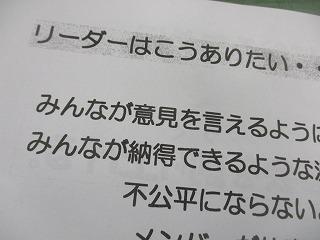 リーダーはこうありたい・・
みんなが意見を言えるように
みんなが納得できるような
不公平にならない
メンバーが